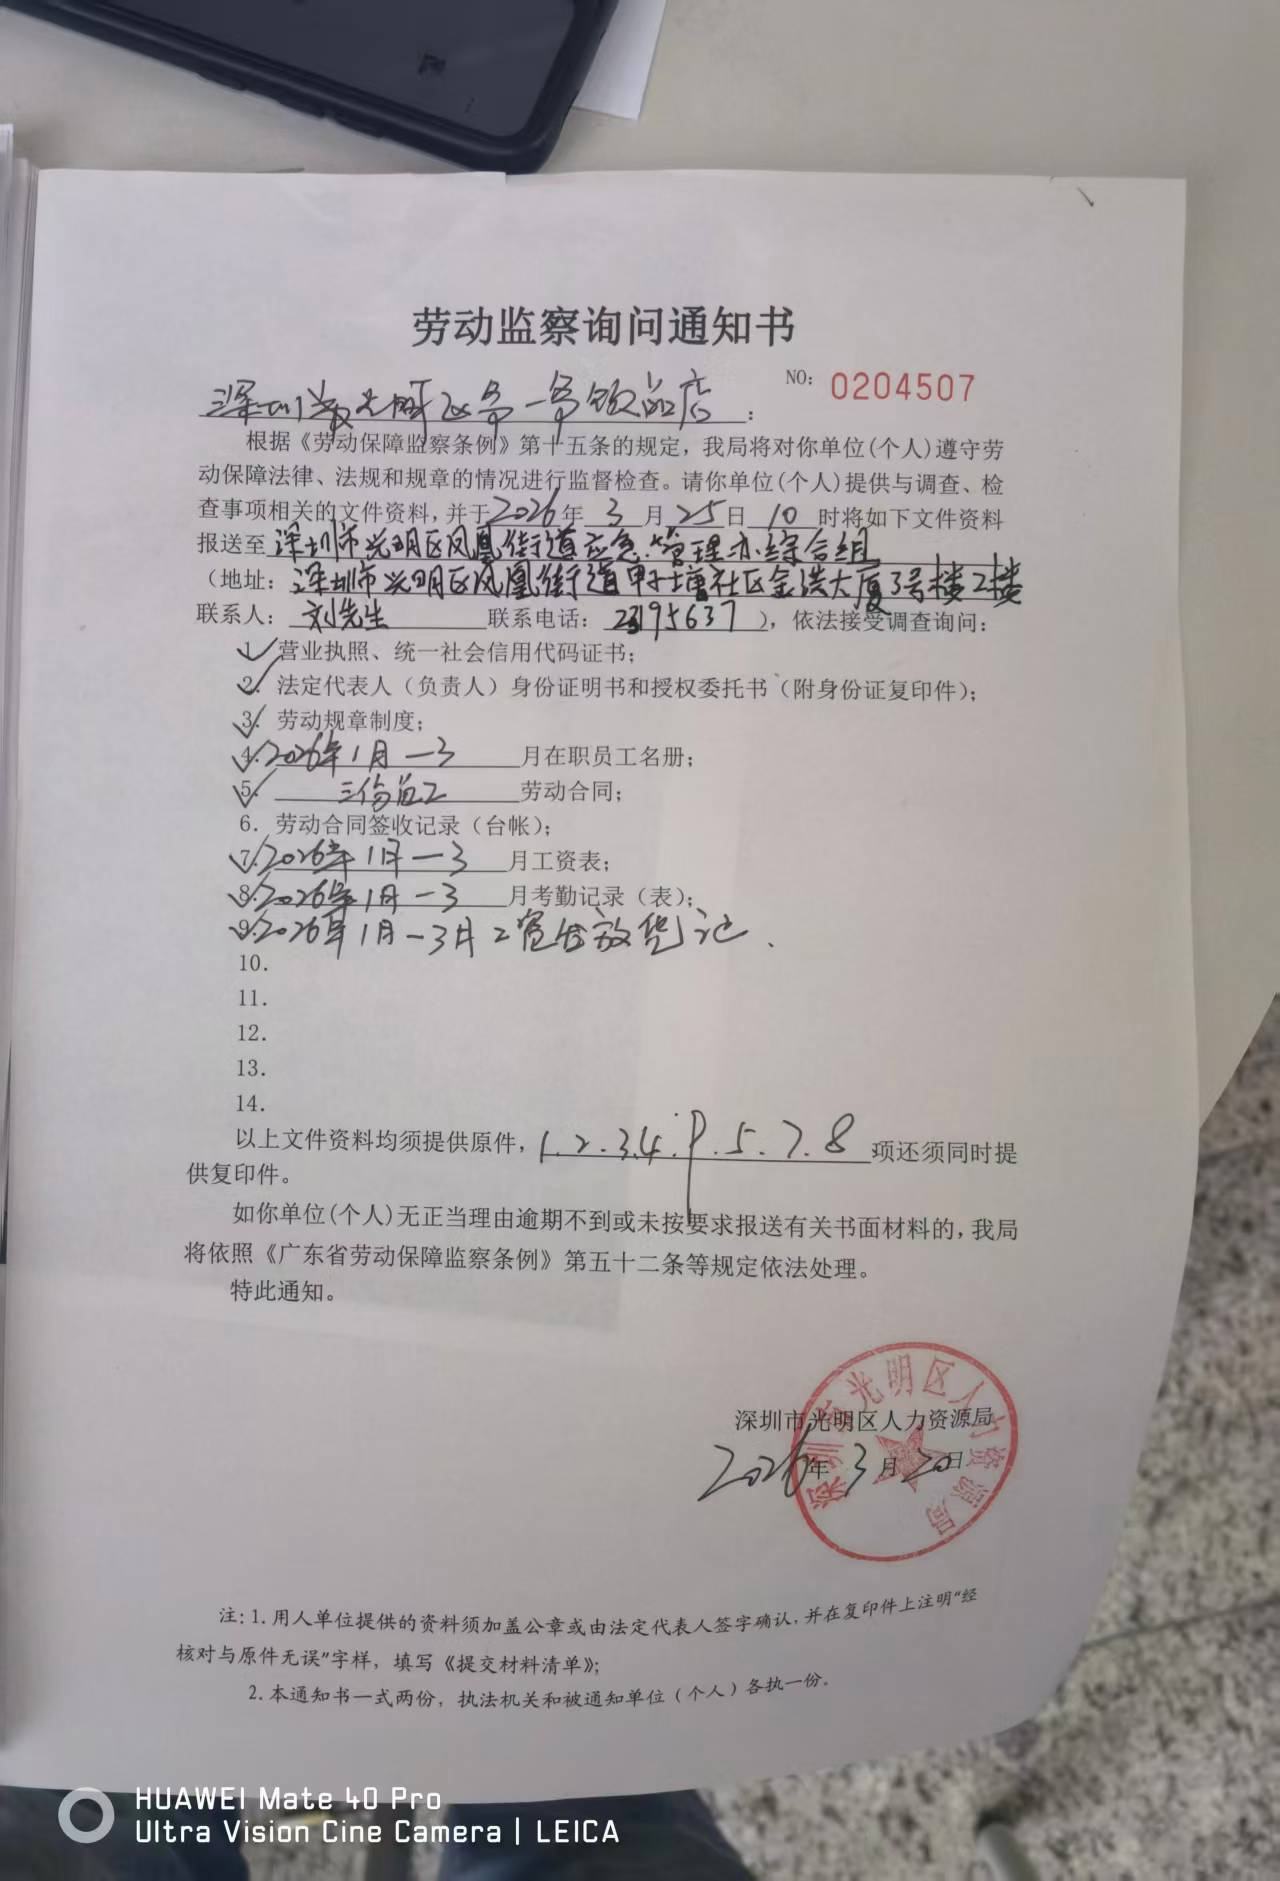 劳动监察询问通知书
NO: 0204507
深圳市光明区 一 饮品店:
根据《劳动保障监察条例》第十五条的规定，我局将对你单位(个人)遵守劳
动保障法律、法规和规章的情况进行监督检查。请你单位(个人)提供与调查、检
查事项相关的文件资料，并于2026年3月25日10时将如下文件资料
报送至深圳市光明区凤凰街道应急管理办综合组
（地址：深圳市光明区凤凰街道甲子塘社区金浩大厦3号楼2楼
联系人：刘先生 联系电话：23195637），依法接受调查询问：
1. 营业执照、统一社会信用代码证书；
2. 法定代表人（负责人）身份证明书和授权委托书（附身份证复印件）；
3. 劳动规章制度；
4. 2026年1月—3月在职员工名册；
5. 三份员工劳动合同；
6. 劳动合同签收记录（台帐）；
7. 2026年1月—3月工资表；
8. 2026年1月—3月考勤记录（表）；
9. 2026年1月—3月工资发放凭记、
10.
11.
12.
13.
14.
以上文件资料均须提供原件，1.2.3.4.9.5.7.8项还须同时提
供复印件。
如你单位(个人)无正当理由逾期不到或未按要求报送有关书面材料的，我局
将依照《广东省劳动保障监察条例》第五十二条等规定依法处理。
特此通知。
深圳市光明区人力资源局
2026年3月20日
深圳市光明区人力资源局
注：1.用人单位提供的资料须加盖公章或由法定代表人签字确认，并在复印件上注明“经
核对与原件无误”字样，填写《提交材料清单》；
2.本通知书一式两份，执法机关和被通知单位（个人）各执一份。
HUAWEI Mate 40 Pro
Ultra Vision Cine Camera | LEICA